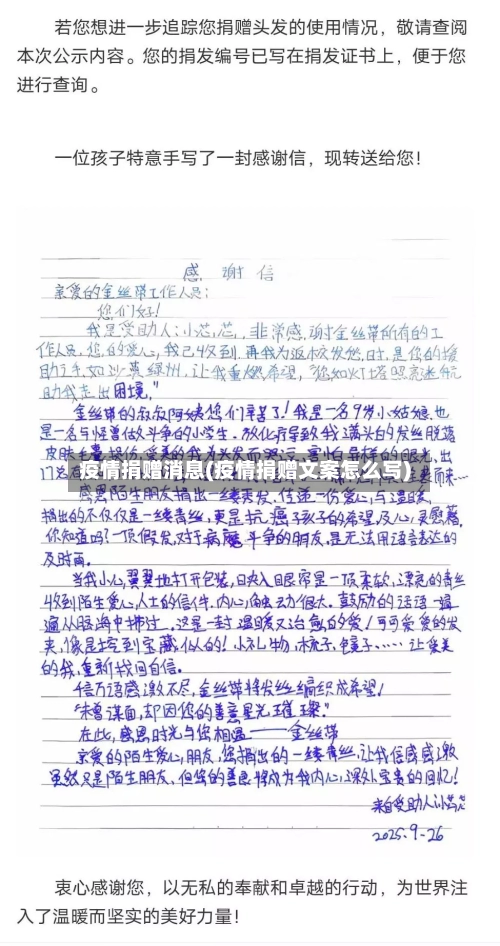 若您想进一步追踪您捐赠头发的使用情况，敬请查阅
本次公示内容。您的捐发编号已写在捐发证书上，便于您
进行查询。
一位孩子特意手写了一封感谢信，现转送给您！
感 谢 信
亲爱的金丝带工作人员：
您们好！
我是受助人：小芯芯，非常感谢金丝带所有的工
作人员，您的爱心，我已收到，再我为返校发愁时，是您的援
助之手，如沙莫绿州，让我重燃希望，“您如火灯塔照亮迷航
助我走出困境。”
金丝带的叔叔阿姨您们辛苦了！我是一名9岁小姑娘，也
是一名与怪兽做斗争的小学生。放化疗导致我满头的发丝脱落
疫情捐赠消息(疫情捐赠文案怎么写)
感恩陌生朋友捐出一缕秀发，传递一份爱心与温暖
捐出的不仅仅是一缕青丝，更是抗癌孩子的希望，及心灵慰藉，
你知道吗？一顶假发，对于病魔斗争的朋友，是无法用语言表达的
及时雨。
当我小心翼翼地打开包装，日映入眼帘是一顶柔软，漂亮的青丝
收到陌生爱心人士的信件，内心触动很大，鼓励的话语一遍
遍从脑海中拂过，这是一封温暖又治愈的爱！可可爱爱的发
夹，像是挖到宝藏似的！小礼物，梳子，镜子……让爱美
的我，重新找回自信。
千言万语感激不尽，金丝带将发丝编织成希望！
“未曾谋面，却因您的善意星光璀璨。”
在此，感恩时光与您相遇——金丝带
亲爱的陌生爱心朋友，您捐出的一缕青丝，让我倍感感激
虽然只是陌生朋友，但您的善良将成为我内心深处宝贵的回忆！
来自受助人小芯芯
2025-9-26
衷心感谢您，以无私的奉献和卓越的行动，为世界注
入了温暖而坚实的美好力量！